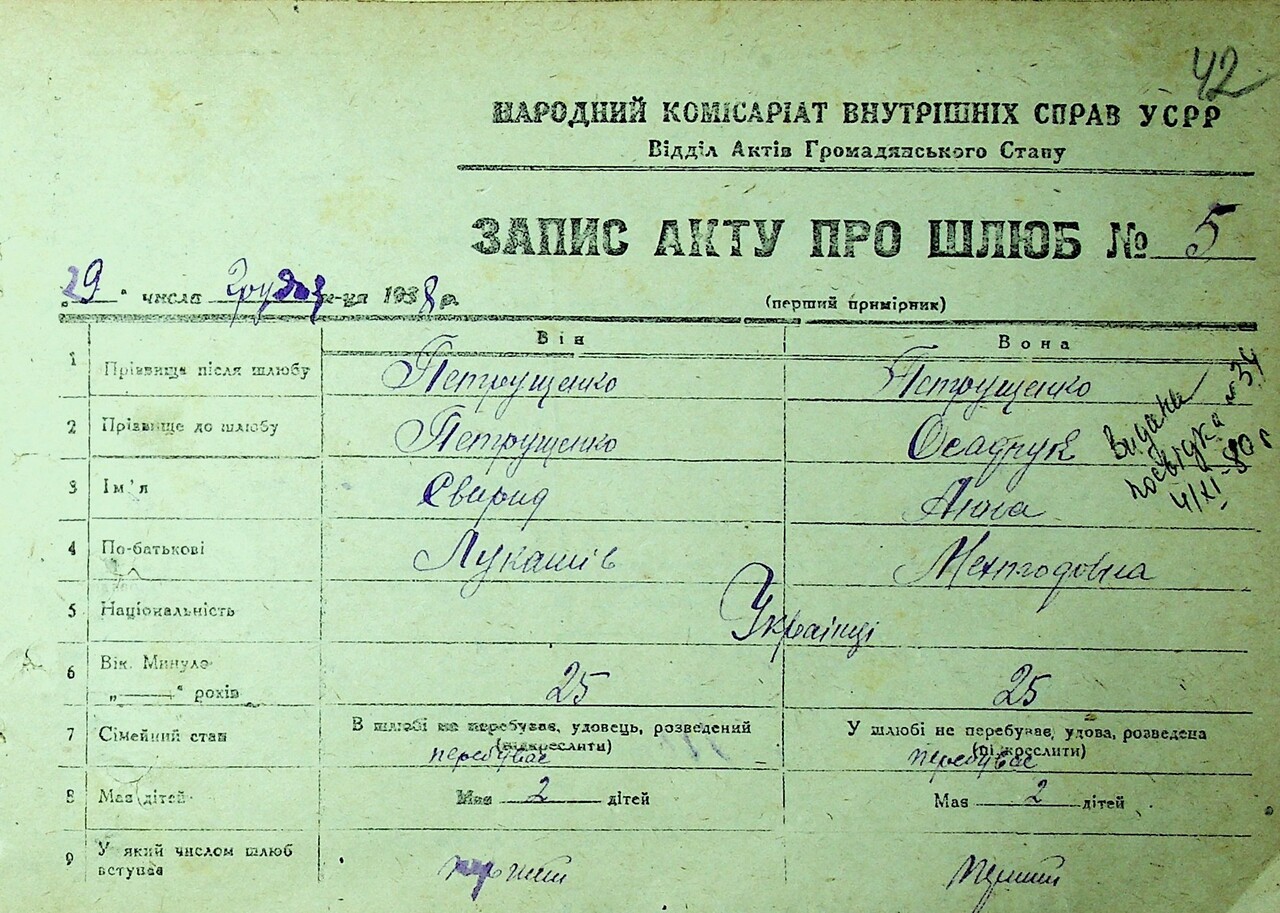 42
НАРОДНИЙ КОМІСАРІАТ ВНУТРІШНІХ СПРАВ УСРР
Відділ Актів Громадянського Стану
ЗАПИС АКТУ ПРО ШЛЮБ № 5
„29“ числа грудня м-ця 1938 р.
(перший примірник)
Він Вона
1 Прізвище після шлюбу Петрущенко Петрущенко
2 Прізвище до шлюбу Петрущенко Осадчук
3 Ім'я Свирид Анна
4 По-батькові Лукашів Мехтодовна
5 Національність Українці
6 Вік. Минуло „——“ років 25 25
7 Сімейний стан В шлюбі не перебуває, удовець, розведений У шлюбі не перебуває, удова, розведена
(підкреслити) (підкреслити)
перебуває перебуває
8 Має дітей Має 2 дітей Має 2 дітей
9 У який числом шлюб вступає перший перший
Видана посвідка № 34
4/XI-80 г